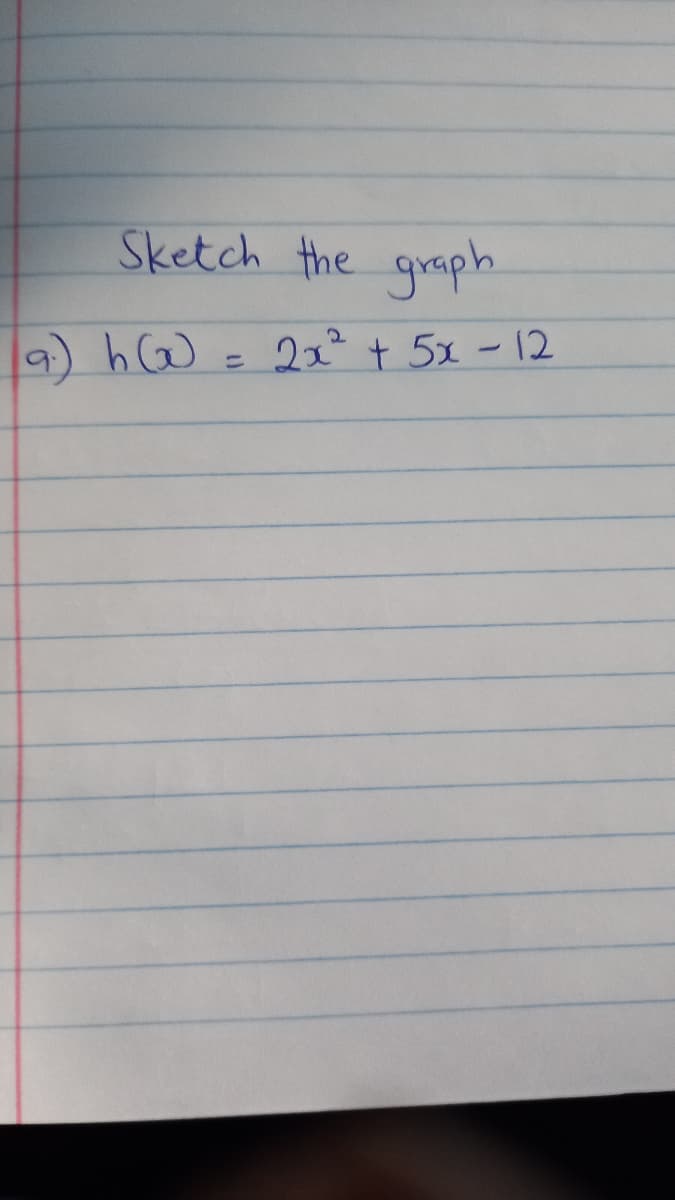 Sketch the graph
a.) h(x) = 2x² + 5x - 12